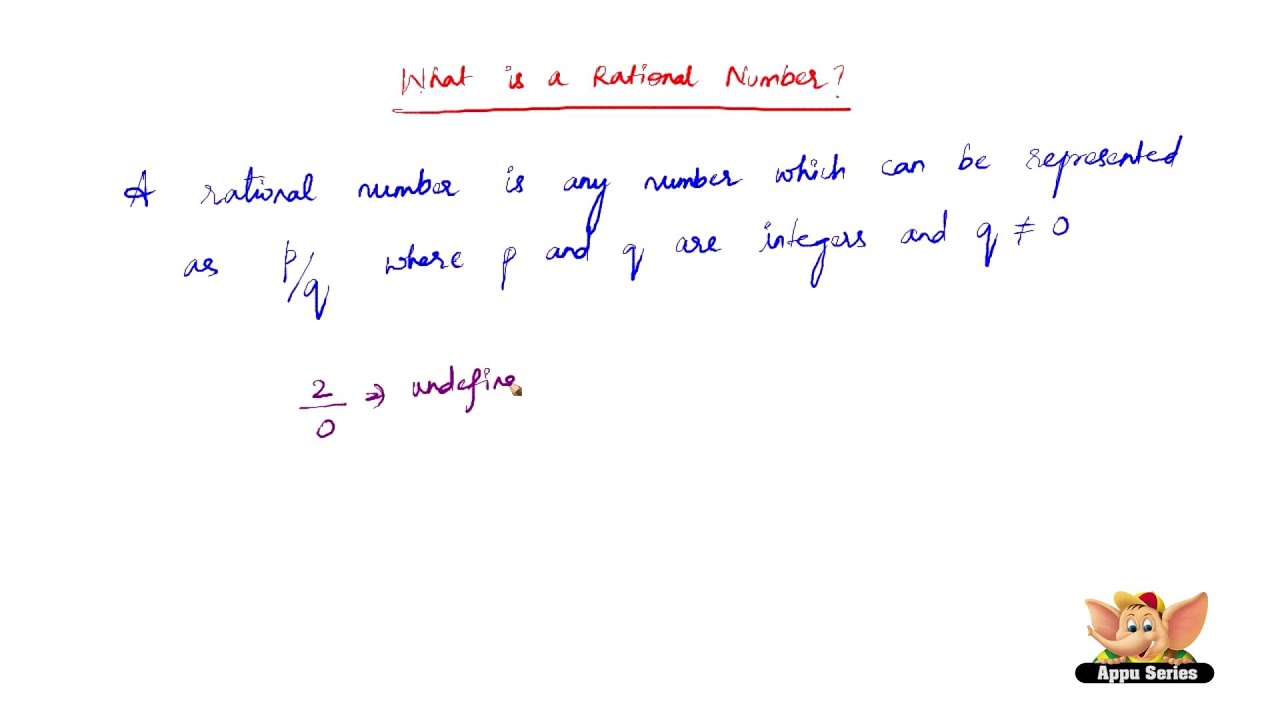 What is a Rational Number?
A rational number is any number which can be represented
as p/q where p and q are integers and q ≠ 0
2/0 ⇒ undefine
Appu Series